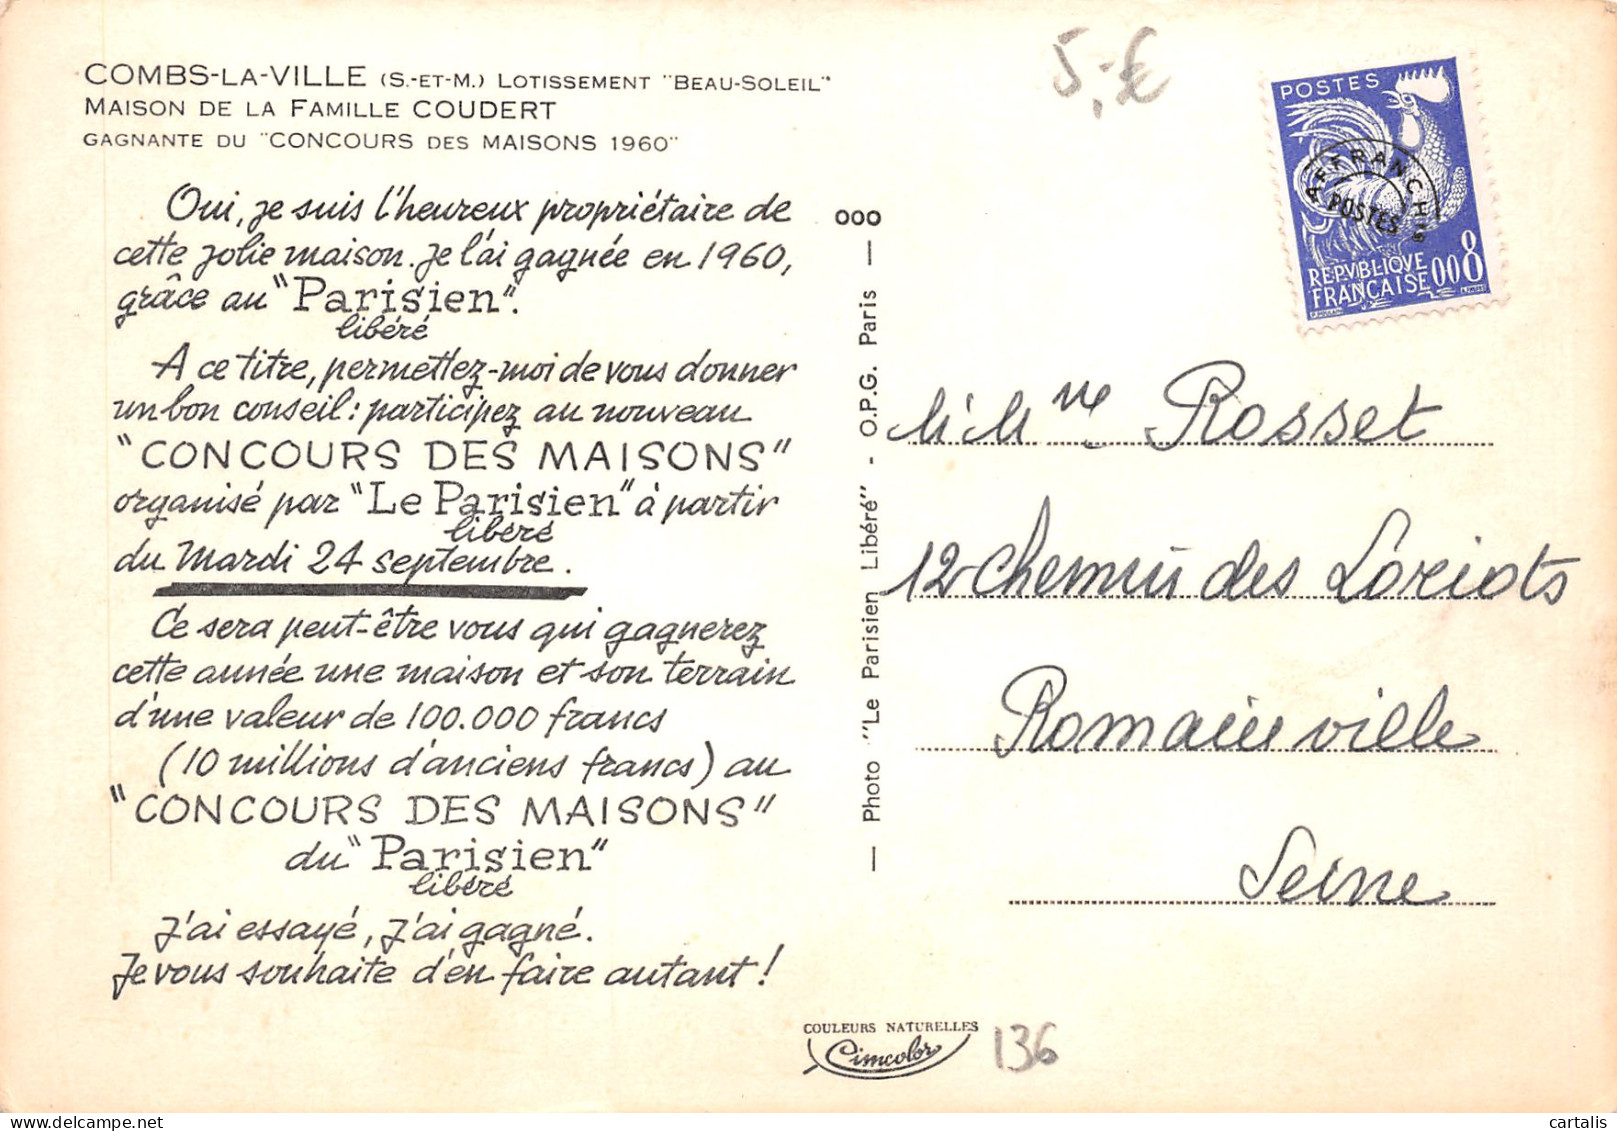 COMBS-LA-VILLE (S.-ET-M.) LOTISSEMENT "BEAU-SOLEIL"
MAISON DE LA FAMILLE COUDERT
GAGNANTE DU "CONCOURS DES MAISONS 1960"
Oui, je suis l'heureux propriétaire de
cette jolie maison. Je l'ai gagnée en 1960,
grâce au "Parisien".
libéré
A ce titre, permettez-moi de vous donner
un bon conseil : participez au nouveau
"CONCOURS DES MAISONS"
organisé par "Le Parisien" à partir
libéré
du Mardi 24 septembre.
Ce sera peut-être vous qui gagnerez
cette année une maison et son terrain
d'une valeur de 100.000 francs
(10 millions d'anciens francs) au
"CONCOURS DES MAISONS"
du "Parisien"
libéré
J'ai essayé, j'ai gagné.
Je vous souhaite d'en faire autant !
000
— Photo "Le Parisien Libéré" - O.P.G. Paris —
5,-€
POSTES
AFFRANCHts
POSTES
REPVBLIQVE
FRANCAISE 008
Rosset
12 chemin des Loriots
Romainville
Seine
COULEURS NATURELLES
Cimcolor
136
cartalis
www.delcampe.net